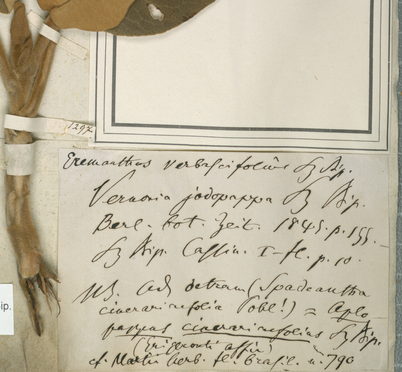 1297
Eremanthus verbascifolius Sz Bip.
Vernonia jodopappa Sz Bip.
Berl. bot. Zeit. 1845. p. 155.
Sz Bip. Cassin. I-fl. p. 10.
NB. Ad (Spadeantha
cinerariifolia Pohl!) = Aplo-
pappus cinerariifolius Sz Bip.
(Erigeronti affin)
cf. Martii herb. fl. brasil. n. 790
ip.